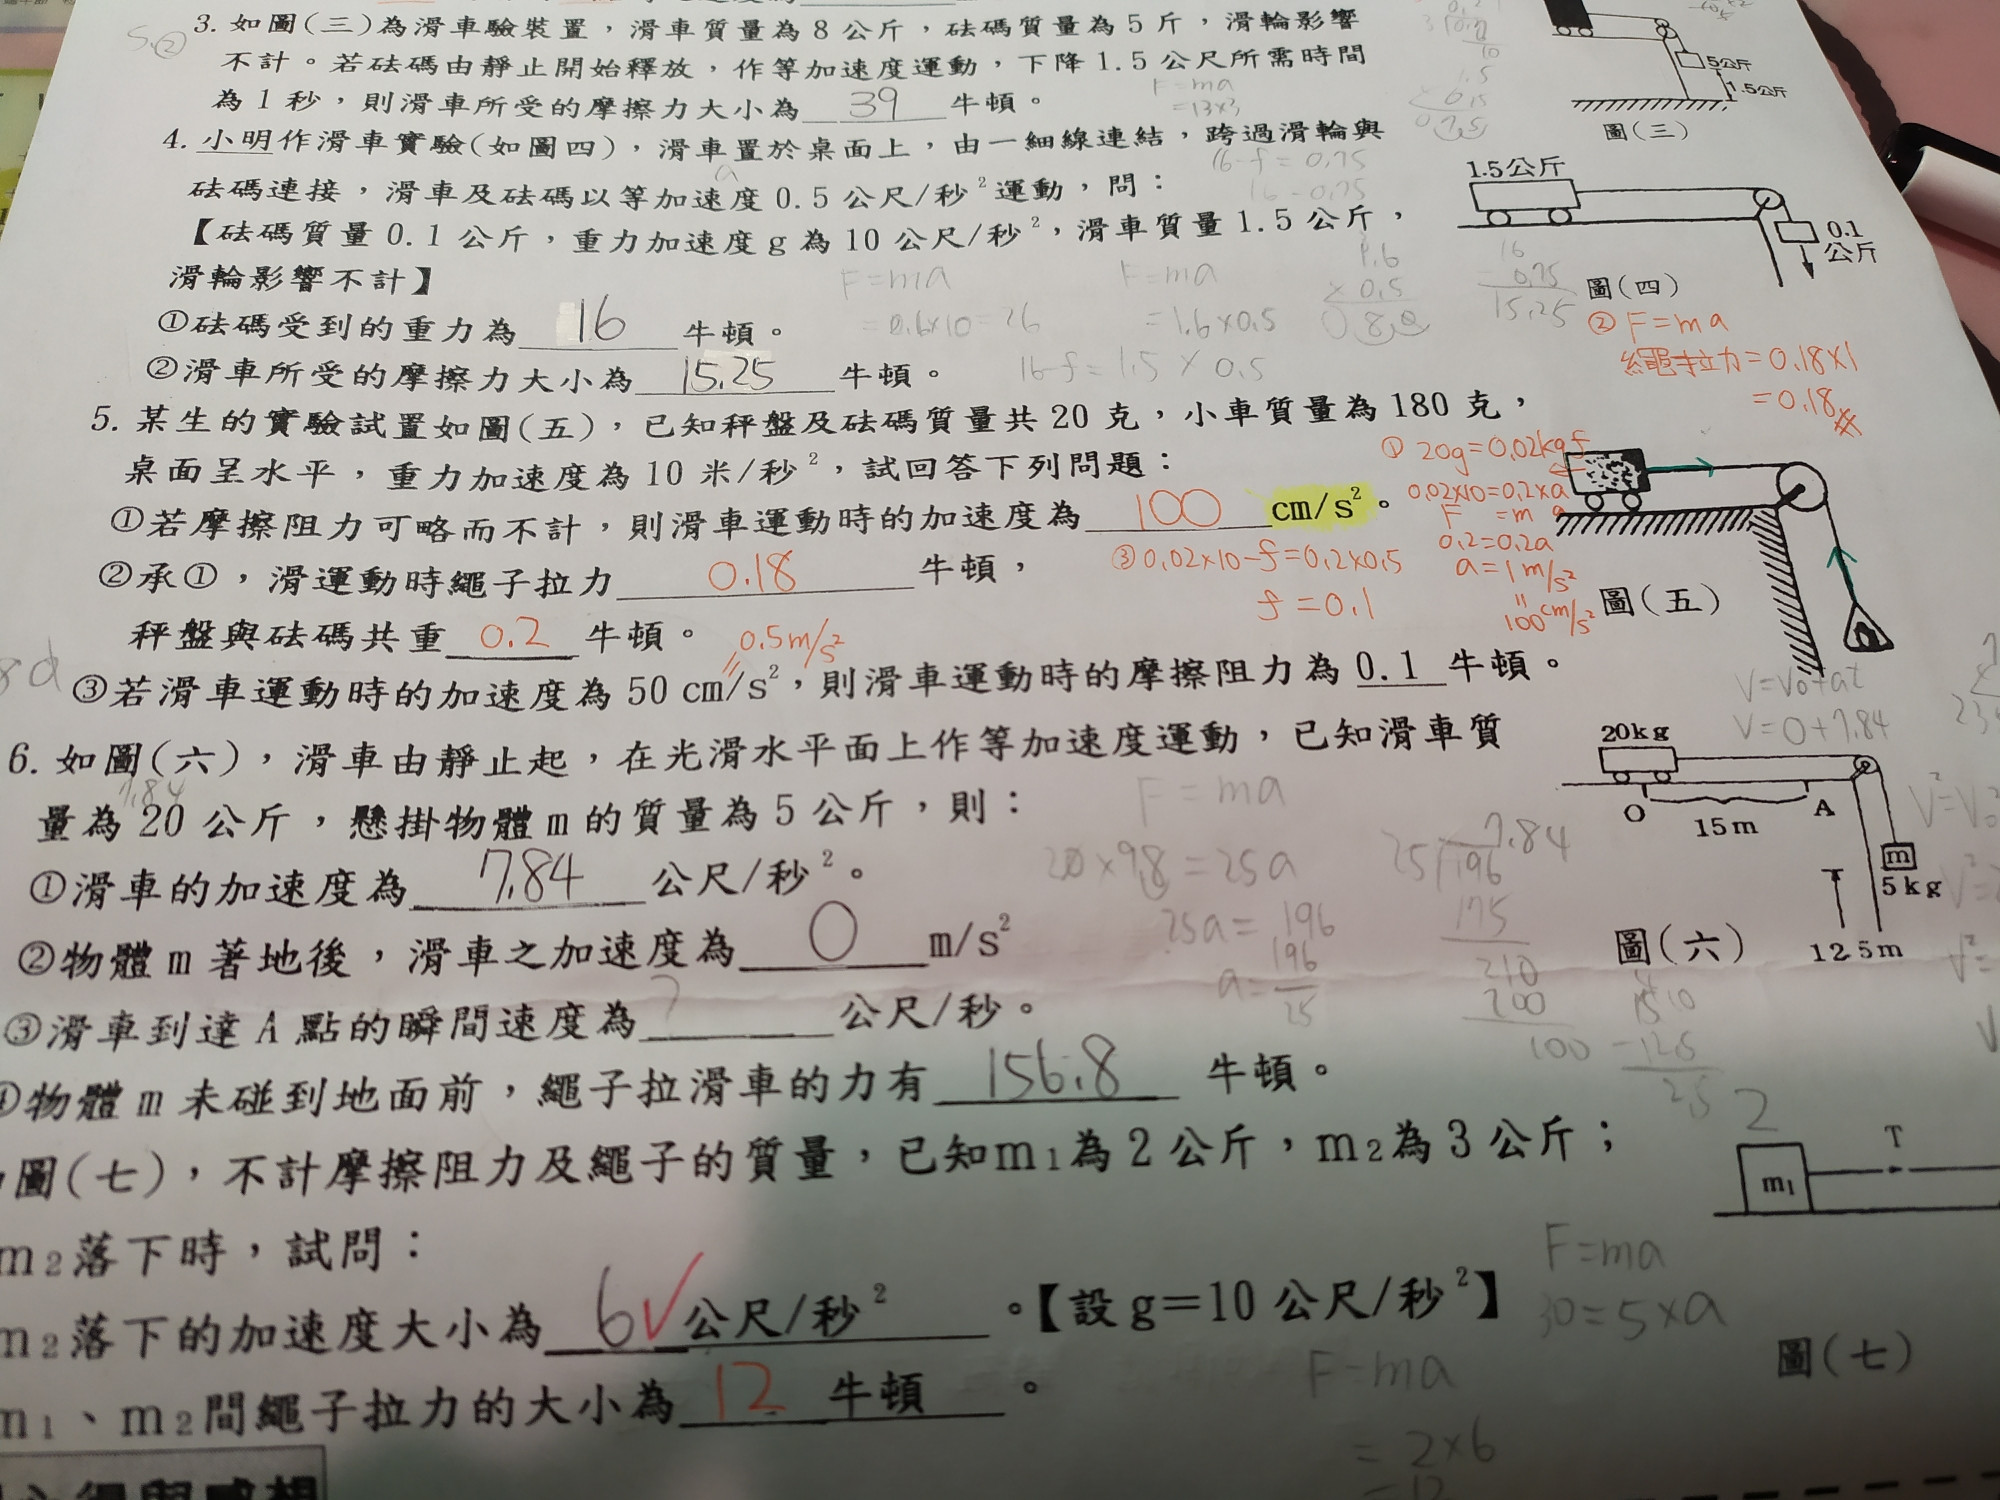 3. 如圖(三)為滑車驗裝置，滑車質量為8公斤，砝碼質量為5斤，滑輪影響
不計。若砝碼由靜止開始釋放，作等加速度運動，下降1.5公尺所需時間
為1秒，則滑車所受的摩擦力大小為 39 牛頓。
F=ma
=13×3
5公斤
1.5公斤
圖(三)
4. 小明作滑車實驗(如圖四)，滑車置於桌面上，由一細線連結，跨過滑輪與
砝碼連接，滑車及砝碼以等加速度0.5公尺/秒²運動，問：
【砝碼質量0.1公斤，重力加速度g為10公尺/秒²，滑車質量1.5公斤，
滑輪影響不計】
16-f=0.75
16-0.75
①砝碼受到的重力為 16 牛頓。
②滑車所受的摩擦力大小為 15.25 牛頓。
F=ma
F=ma
=1.6×0.5
16-f=1.5×0.5
1.6
×0.5
16
-0.75
15.25
1.5公斤
0.1
公斤
圖(四)
② F=ma
繩拉力=0.18×1
=0.18
5. 某生的實驗試置如圖(五)，已知秤盤及砝碼質量共20克，小車質量為180克，
桌面呈水平，重力加速度為10米/秒²，試回答下列問題：
①若摩擦阻力可略而不計，則滑車運動時的加速度為 100 cm/s²。
②承①，滑運動時繩子拉力 0.18 牛頓，
秤盤與砝碼共重 0.2 牛頓。
0.5m/s²
③若滑車運動時的加速度為50 cm/s²，則滑車運動時的摩擦阻力為 0.1 牛頓。
① 20g=0.02kgf
0.02×10=0.2×a
F =m a
0.2=0.2a
a=1m/s²
100cm/s²
③ 0.02×10-f=0.2×0.5
f=0.1
圖(五)
6. 如圖(六)，滑車由靜止起，在光滑水平面上作等加速度運動，已知滑車質
量為20公斤，懸掛物體m的質量為5公斤，則：
①滑車的加速度為 7.84 公尺/秒²。
②物體m著地後，滑車之加速度為 0 m/s²
③滑車到達A點的瞬間速度為 公尺/秒。
④物體m未碰到地面前，繩子拉滑車的力有 156.8 牛頓。
7.84
F=ma
20×9.8=25a
25a=196
a=196/25
7.84
25 196
175
210
200
100
V=V₀+at
V=0+7.84
20kg
O
15m
A
m
5kg
12.5m
圖(六)
圖(七)，不計摩擦阻力及繩子的質量，已知m₁為2公斤，m₂為3公斤；
m₂落下時，試問：
m₂落下的加速度大小為 6 公尺/秒² 。【設g=10公尺/秒²】
m₁、m₂間繩子拉力的大小為 12 牛頓 。
2
m₁
T
F=ma
30=5×a
F=ma
=2×6
=12
圖(七)